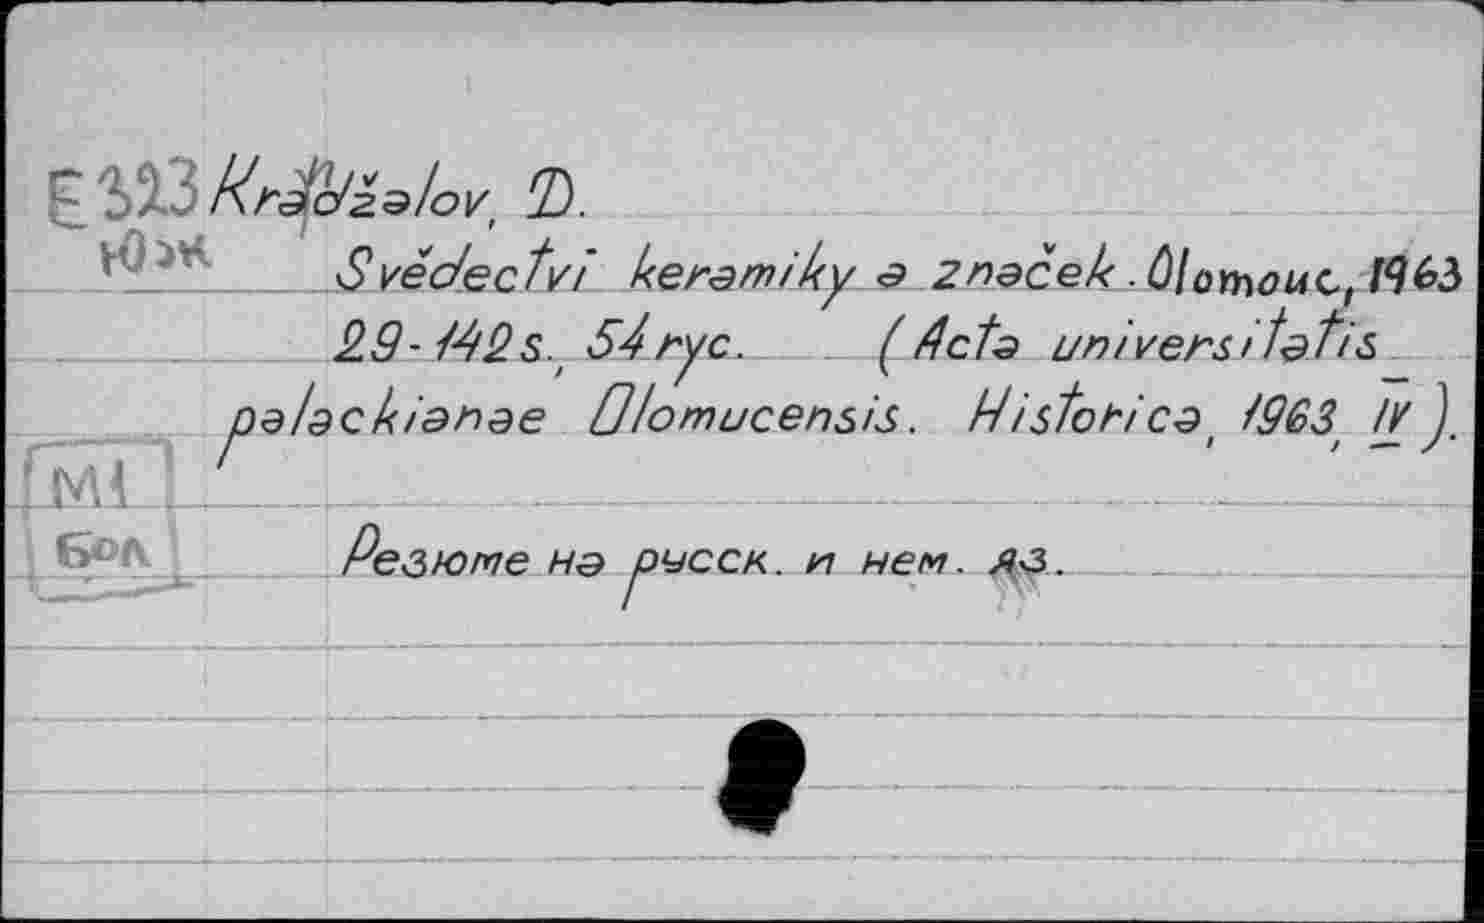 E 323 Kraндžalov, D.
Юж Svědectví keramiky a značek. Olomouc, 1963
29-142 s., 54 рус. (Acta universitatis
palackianae Olomucensis. Historica, 1963, IV).
М1
Бол Резюме на русск. и нем. яз.